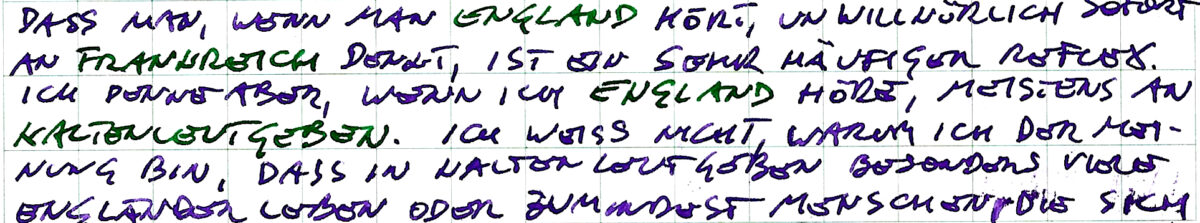 DASS MAN, WENN MAN ENGLAND HÖRT, UNWILLKÜRLICH SOFORT
AN FRANKREICH DENKT, IST EIN SEHR HÄUFIGER REFLEX.
ICH DENKE ABER, WENN ICH ENGLAND HÖRE, MEISTENS AN
KALTENLEUTGEBEN. ICH WEISS NICHT, WARUM ICH DER MEI-
NUNG BIN, DASS IN KALTENLEUTGEBEN BESONDERS VIELE
ENGLÄNDER LEBEN ODER ZUMINDEST MENSCHEN, DIE SICH